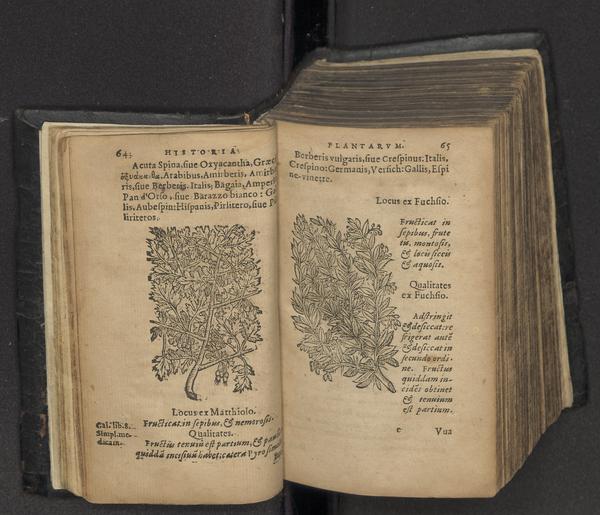 64
HISTORIA
Acuta Spina, siue Oxyacantha, Græcè
Arabibus, Amirberis, Amirbe
ris, siue Berberis. Italis, Bagaia, Amperlo
Pan d'Orso, siue Barazzo bianco: Gal
lis, Aubespin: Hispanis, Pirlitero, siue Pi
lriteros.
Locus ex Matthiolo.
Fructicat in sepibus, & nemorosis.
Qualitates.
Gal. lib. 8.
Simpl. me-
dicam.
Fructus tenuiũ est partium, &
quiddã incisiuũ habet: cætera Pyro
PLANTARVM.
65
Berberis vulgaris, siue Crespinus: Italis,
Crespino: Germanis, Versich: Gallis, Espi
ne-vinette.
Locus ex Fuchsio.
Fructicat in
sepibus, frute
tis, montosis,
& locis siccis
& aquosis.
Qualitates
ex Fuchsio.
Adstringit
& desiccat: re
frigerat autẽ
& desiccat in
secundo ordi-
ne. Fructus
quiddam in-
cidẽs obtinet
& tenuium
est partium.
e
Vua